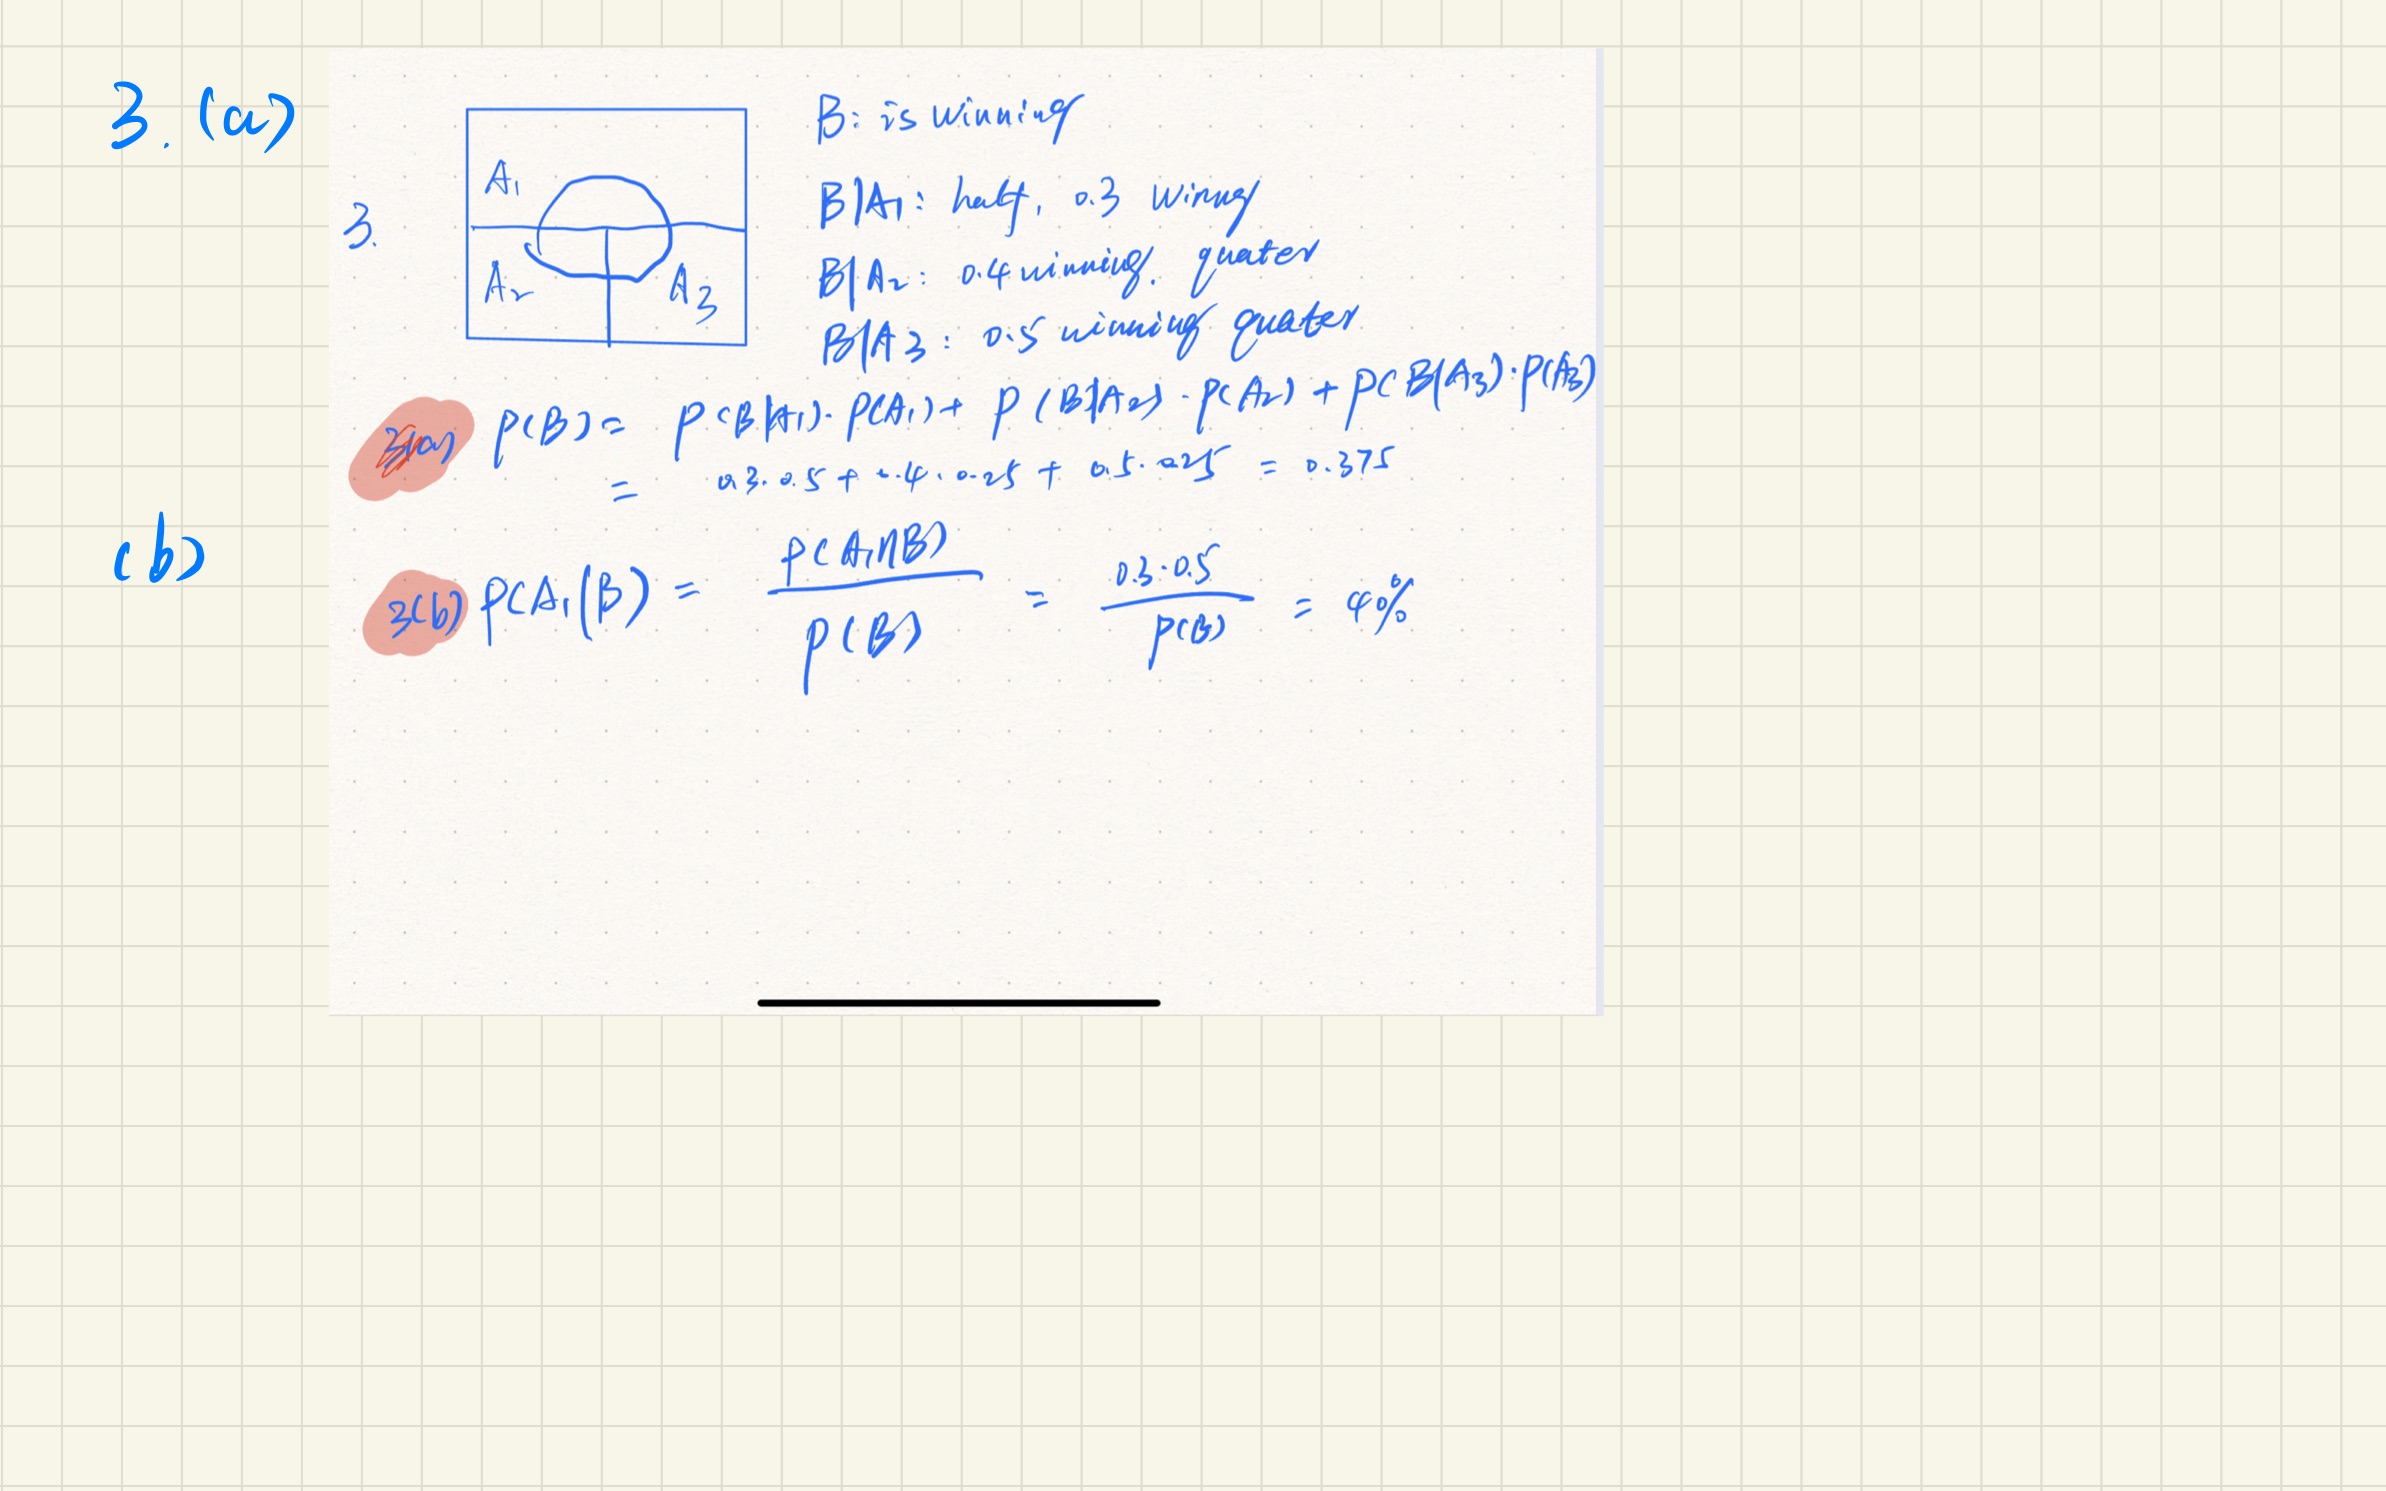 3. (a)
3.
A₁
A₂
A₃
B: is winning
B|A₁: half, 0.3 wining
B|A₂: 0.4 winning. quater
B|A3: 0.5 winning quater
3(a) P(B) = P(B|A₁)·P(A₁) + P(B|A₂)·P(A₂) + P(B|A₃)·P(A₃)
= 0.3·0.5 + 0.4·0.25 + 0.5·0.25 = 0.375
(b)
3(b) P(A₁|B) = P(A₁∩B) / P(B) = 0.3·0.5 / P(B) = 40%